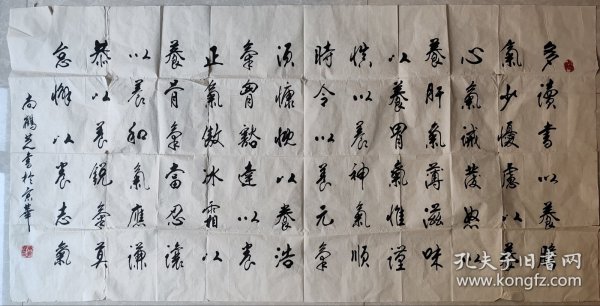 多讀書以養膽
氣少憂慮以養
心氣誡發怒以
養肝氣薄滋味
以養胃氣惟謹
慎以養神氣順
時令以養元氣
須慷慨以養浩
氣胷豁達以養
正氣傲冰霜以
養骨氣當忍讓
以養和氣應謙
恭以養銳氣莫
怠懈以養志氣
尚鵬書於京華
孔夫子旧书网
www.kongfz.com